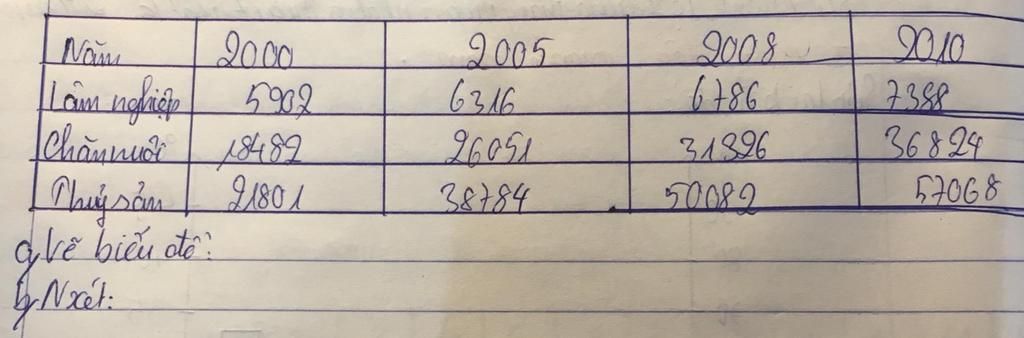 Năm 2000 2005 2008 2010
Lâm nghiệp 5902 6316 6786 7388
Chăn nuôi 18482 26051 31326 36824
Thuỷ sản 21801 38784 50082 57068
a, Vẽ biểu đồ:
b, N xét: